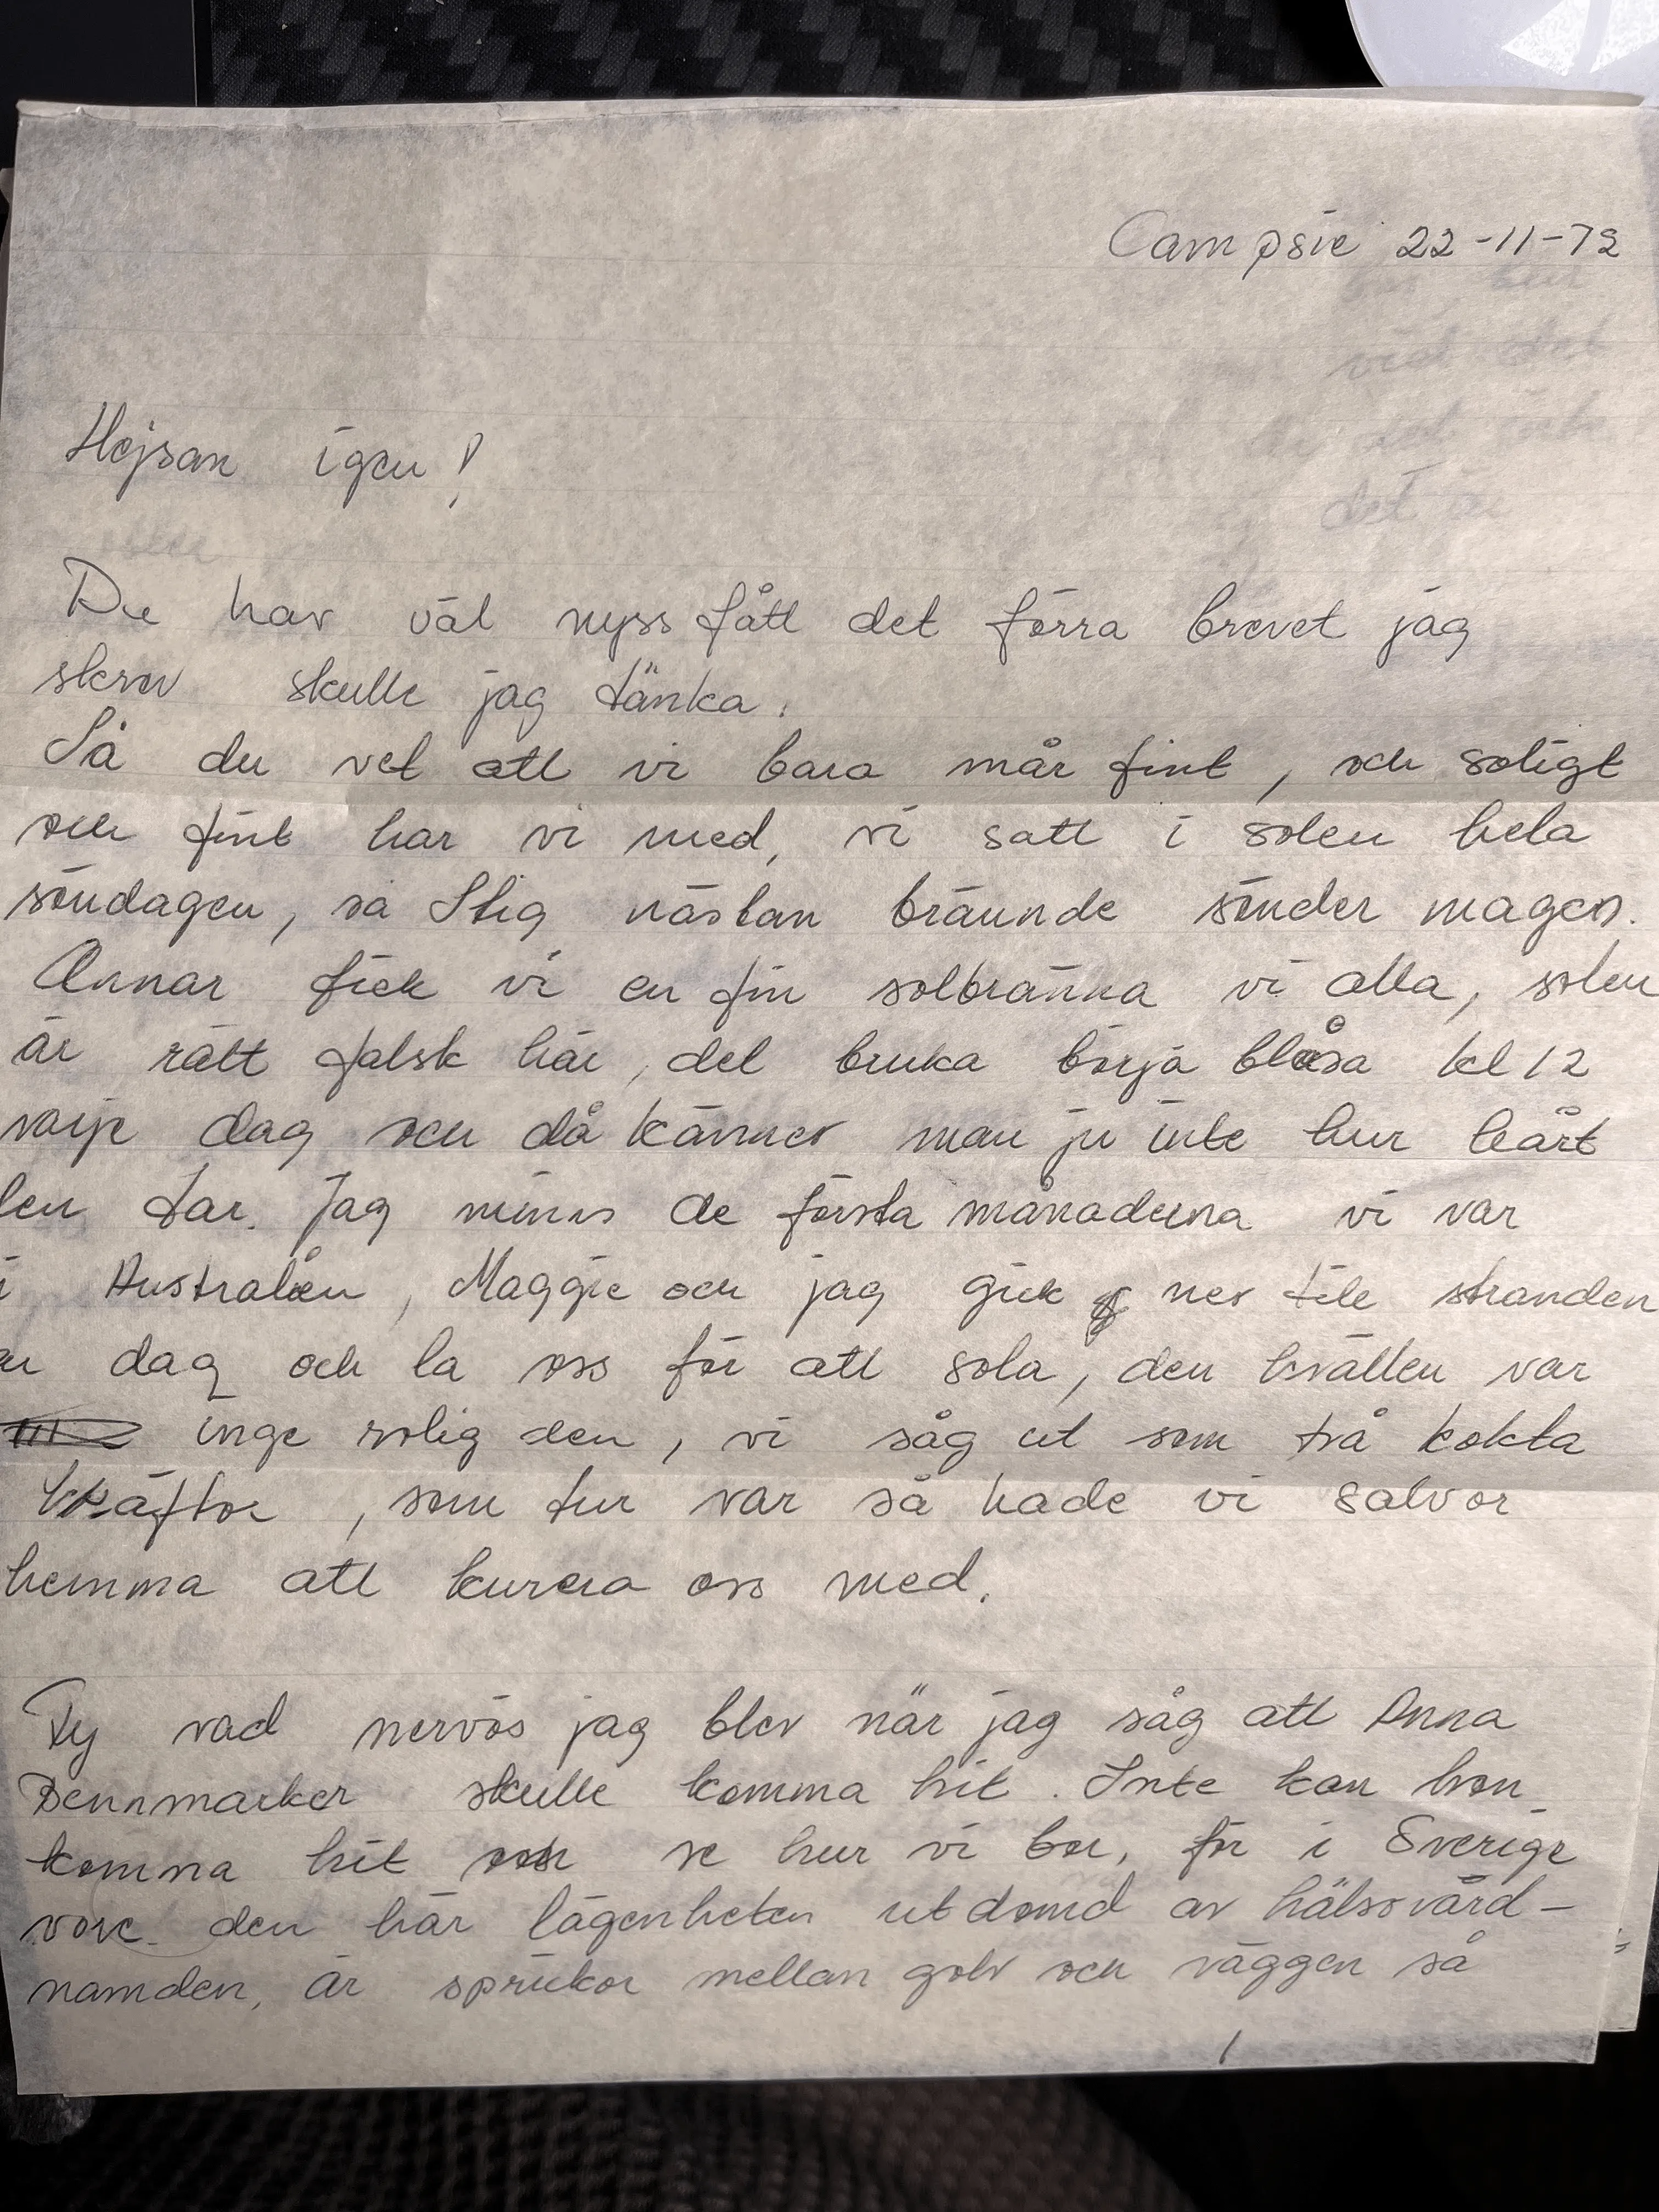 Campsie 22-11-72
Hejsan igen!
Du har väl nyss fått det förra brevet jag
skrev skulle jag tänka.
Så du vet att vi bara mår fint, och soligt
och fint har vi med, vi satt i solen hela
söndagen, så Stig nästan brännde sönder magen.
Annar fick vi en fin solbränna vi alla, solen
är rätt falsk här, det bruka börja blåsa kl 12
varje dag och då känner man ju inte hur hårt
den tar. Jag minns de första månaderna vi var
i Australien, Maggie och jag gick ner till stranden
en dag och la oss för att sola, den kvällen var
inge rolig den, vi såg ut som två kokta
kräftor, som tur var så hade vi salvor
hemma att kurera oss med.
Fy vad nervös jag blev när jag såg att Anna
Dennmarker skulle komma hit. Inte kan hon
komma hit och se hur vi bor, för i Sverige
vore den här lägenheten utdömd av hälsovård-
namden, är sprickor mellan golv och väggen så
1